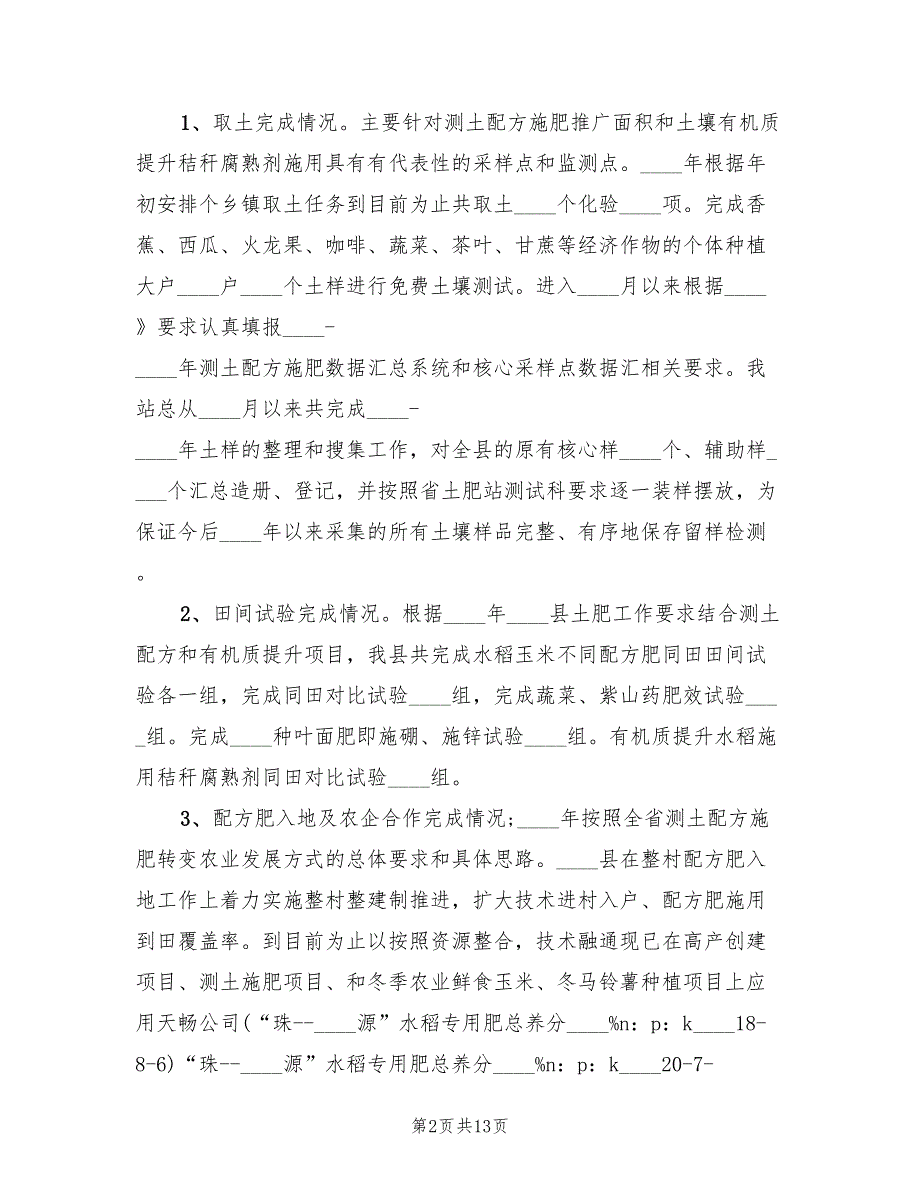 1、取土完成情况。主要针对测土配方施肥推广面积和土壤有机质
提升秸秆腐熟剂施用具有有代表性的采样点和监测点。____年根据年
初安排个乡镇取土任务到目前为止共取土____个化验____项。完成香
蕉、西瓜、火龙果、咖啡、蔬菜、茶叶、甘蔗等经济作物的个体种植
大户____户____个土样进行免费土壤测试。进入____月以来根据____
》要求认真填报____-
____年测土配方施肥数据汇总系统和核心采样点数据汇相关要求。我
站总从____月以来共完成____-
____年土样的整理和搜集工作，对全县的原有核心样____个、辅助样_
___个汇总造册、登记，并按照省土肥站测试科要求逐一装样摆放，为
保证今后____年以来采集的所有土壤样品完整、有序地保存留样检测
。
2、田间试验完成情况。根据____年____县土肥工作要求结合测土
配方和有机质提升项目，我县共完成水稻玉米不同配方肥同田田间试
验各一组，完成同田对比试验____组，完成蔬菜、紫山药肥效试验___
_组。完成____种叶面肥即施硼、施锌试验____组。有机质提升水稻施
用秸秆腐熟剂同田对比试验____组。
3、配方肥入地及农企合作完成情况;____年按照全省测土配方施
肥转变农业发展方式的总体要求和具体思路。____县在整村配方肥入
地工作上着力实施整村整建制推进，扩大技术进村入户、配方肥施用
到田覆盖率。到目前为止以按照资源整合，技术融通现已在高产创建
项目、测土施肥项目、和冬季农业鲜食玉米、冬马铃薯种植项目上应
用天畅公司(“珠--____源”水稻专用肥总养分____%n：p：k____18-
8-6)“珠--____源”水稻专用肥总养分____%n：p：k____20-7-
第2页共13页